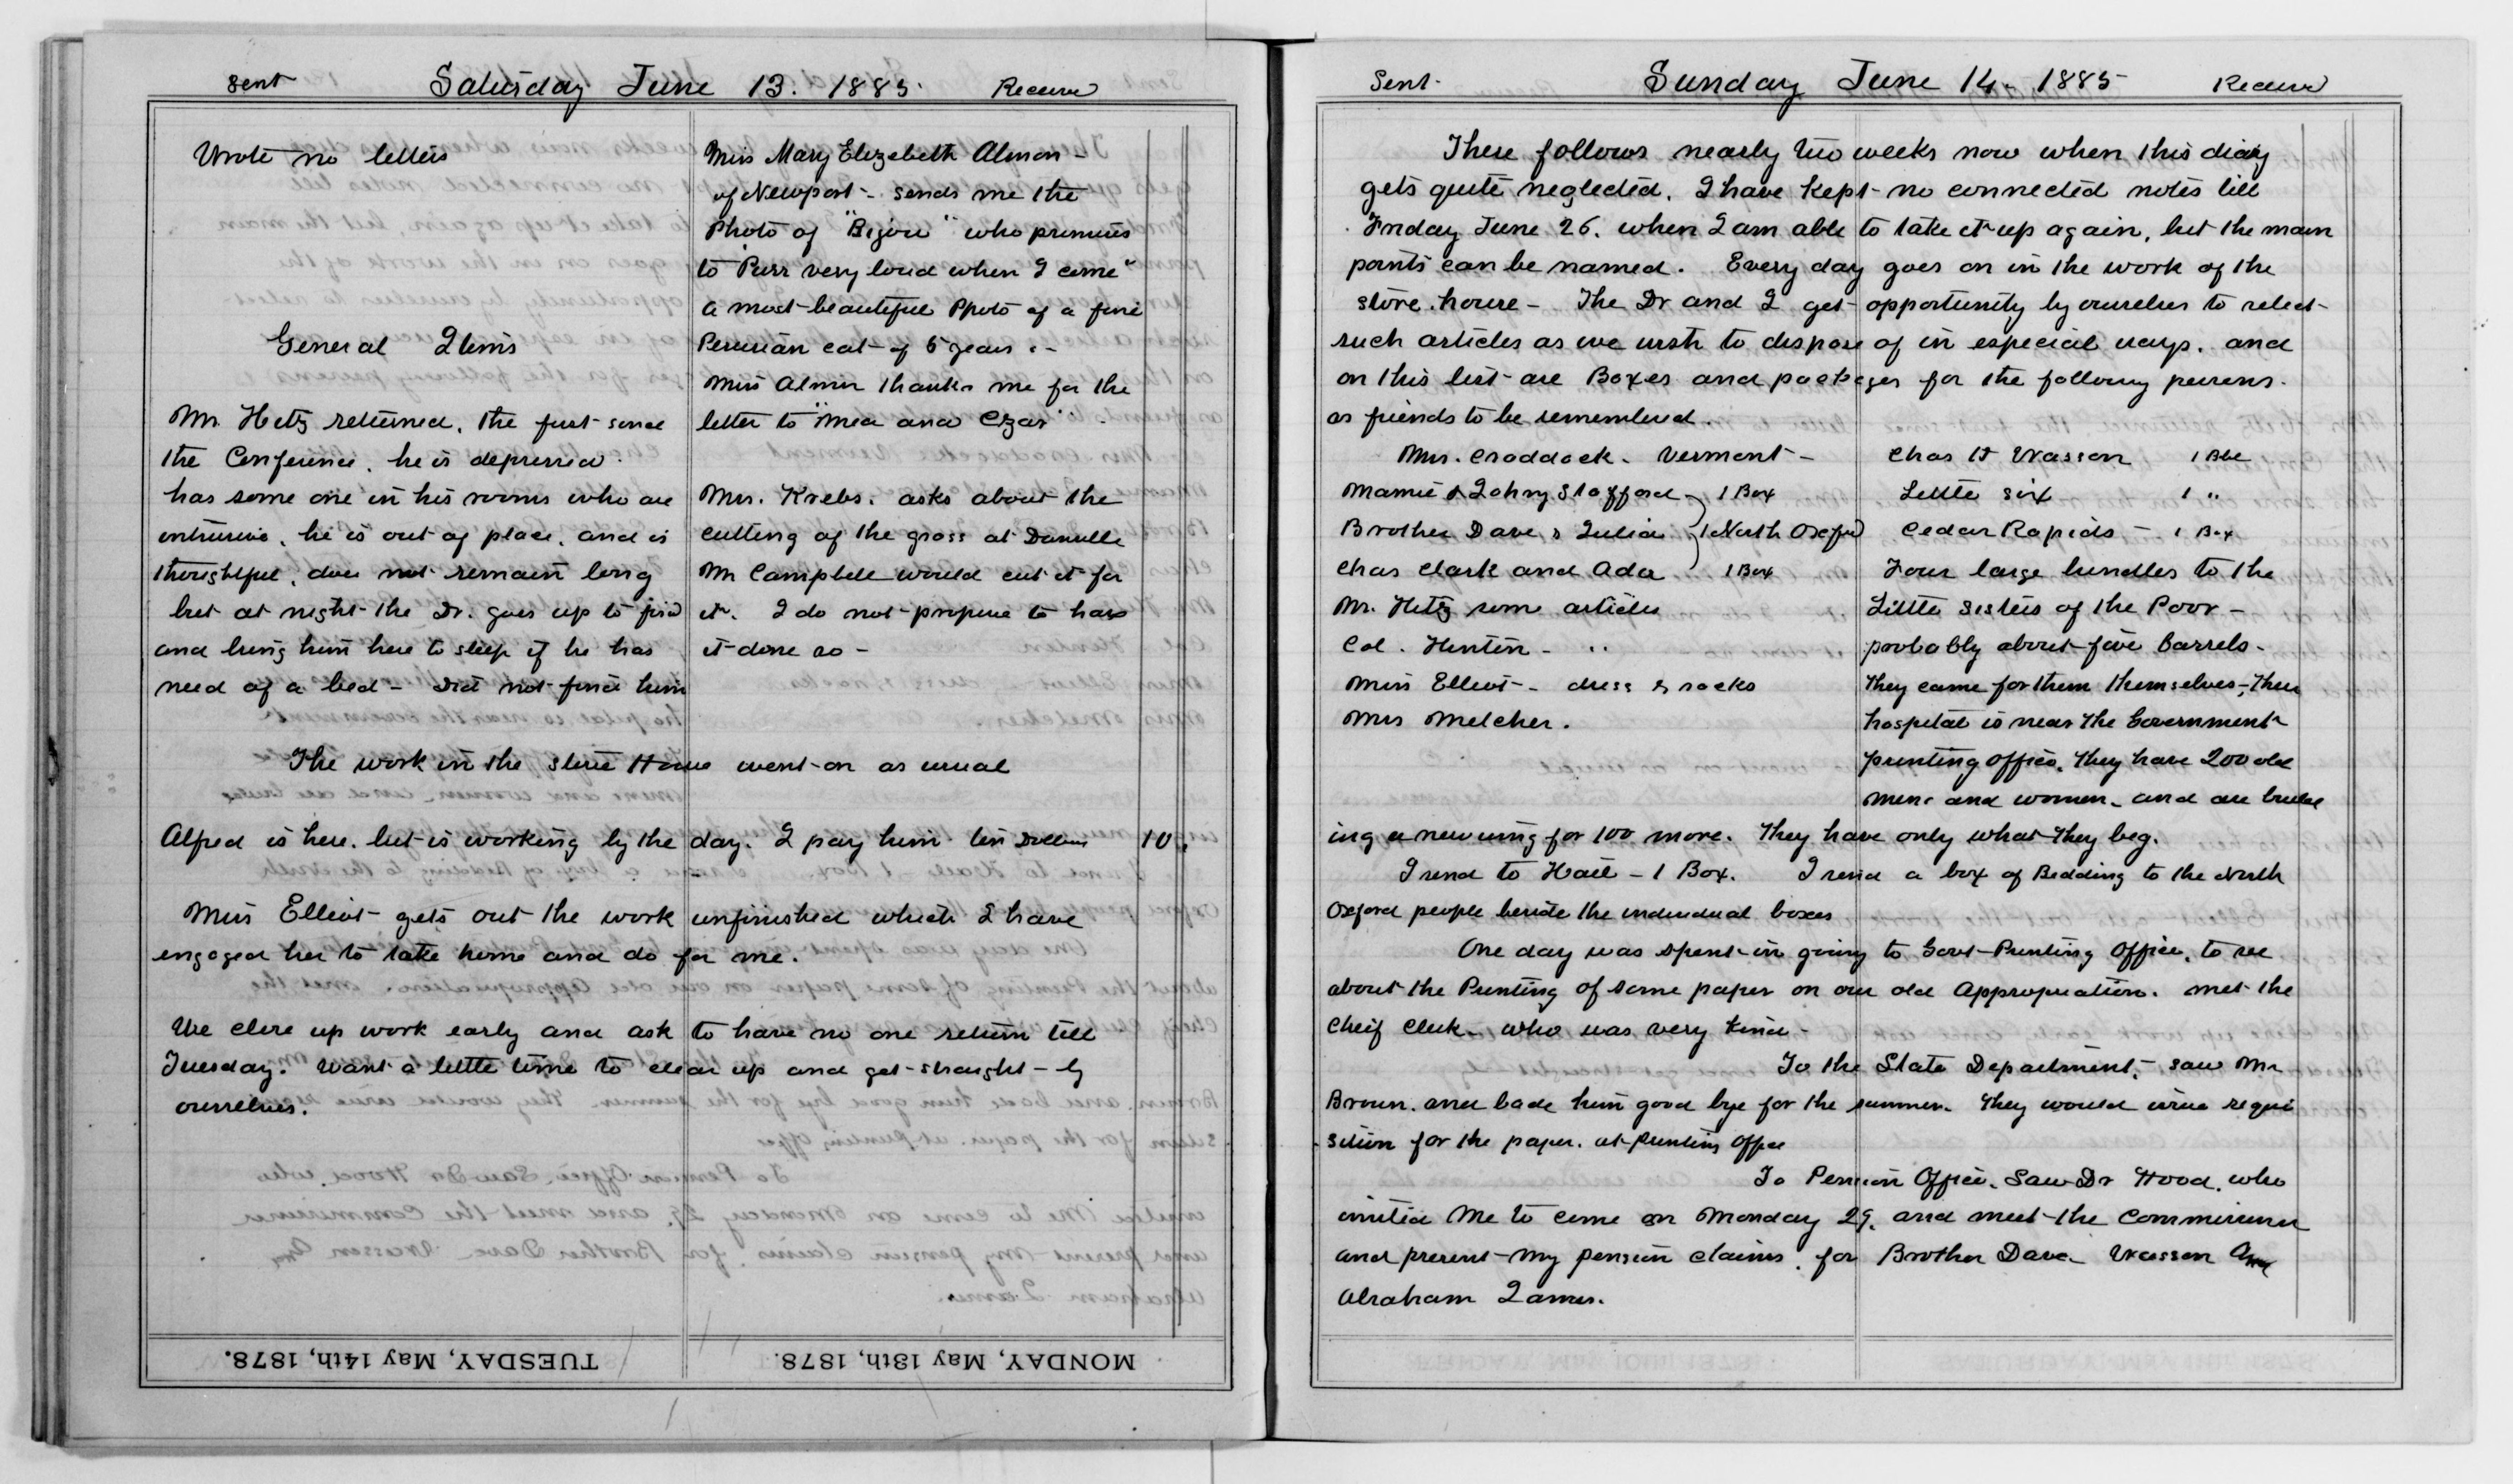 Sent Saturday June 13. 1885. Receive
Wrote no letters
General Items
Mr. Hitz returned, the first since
the Conference. he is depressed.
has some one in his rooms who are
intrusive, he is out of place, and is
thoughtful, does not remain long
but at night the Dr. goes up to find
and bring him here to sleep if he has
need of a bed - Did not find him
Miss Mary Elizabeth Almon -
of Newport - sends me the
Photo of "Bijou" who promises
to Purr very loud when I come"
a most beautiful Photo of a fine
Persian cat of 5 years. -
Miss Almon thanks me for the
letter to "Mea and Czar"
Mrs. Krebs. asks about the
cutting of the grass at Dansville
Mr Campbell would cut it for
it. I do not propose to have
it done so -
The work in the store House went on as usual
Alfred is here. but is working by the day. I pay him ten Dollars 10.
Miss Elliot gets out the work unfinished which I have
engaged her to take home and do for me.
We close up work early and ask to have no one return till
Tuesday. Want a little time to clear up and get straight - by
ourselves.
TUESDAY, May 14th, 1878.
MONDAY, May 13th, 1878.
Sent. Sunday June 14 - 1885 Receive
There follows nearly two weeks now when this diary
gets quite neglected. I have kept no connected notes till
Friday June 26. when I am able to take it up again, but the main
points can be named. Every day goes on in the work of the
store house - The Dr and I get opportunity by ourselves to select
such articles as we wish to dispose of in especial ways. and
on this list are Boxes and packages for the following persons.
or friends to be remembered.
Mrs. Craddock - Vermont -
Mamie & Johny Stafford - 1 Box
Brother Dave & Julia 1 North Oxford
Chas Clark and Ada 1 Box
Mr. Hitz some articles
Col. Hinton - "
Miss Elliot - dress & sacks
Mrs Melcher.
Chas H Wasson 1 Bbl
Little six 1 "
Cedar Rapids - 1 Box
Four large bundles to the
Little Sisters of the Poor -
probably about five Barrels.
They came for them themselves, - Their
hospital is near the Government
printing office. They have 200 old
men and women - and are build
ing a new wing for 100 more. They have only what they beg.
I send to Hait - 1 Box. I send a box of Bedding to the North
Oxford people beside the individual boxes
One day was spent in going to Govt Printing Office, to see
about the Printing of some paper on our old Appropriation. met the
Cheif Clerk - who was very kind -
To the State Department, - saw Mr
Brown. and bade him good bye for the summer. They would issue requi
sition for the paper. at printing office
To Pension Office. Saw Dr Hood. who
invited Me to come on Monday 29. and meet the Commissioner
and present My pension claims. for Brother Dave - Wasson And
Abraham James.